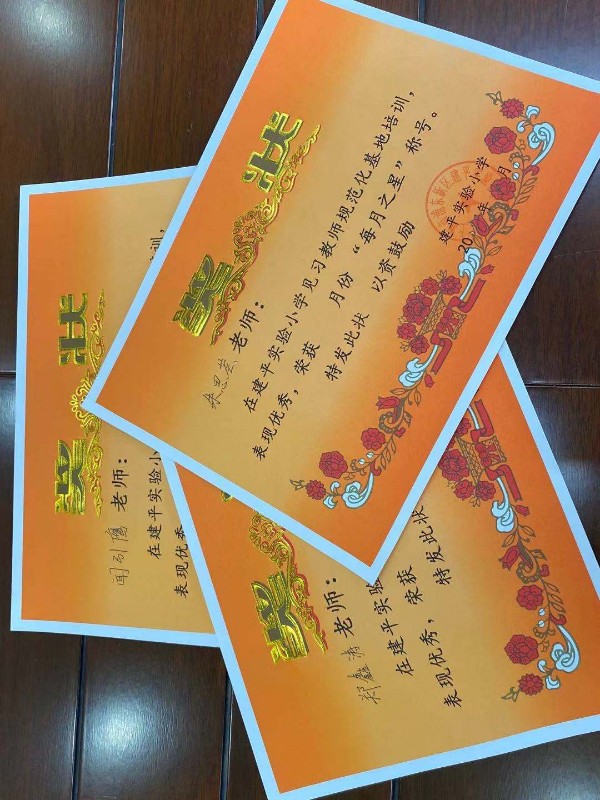 奖状
老师：
在建平实验小学见习教师规范化基地培训，
表现优秀，荣获 月份“每月之星”称号。
特发此状 以资鼓励
建平实验小学
20 年 月
奖状
老师：
在建平实验小
表现优秀
训，
奖
老师：
在建平实验
表现优秀，荣获
特发此状